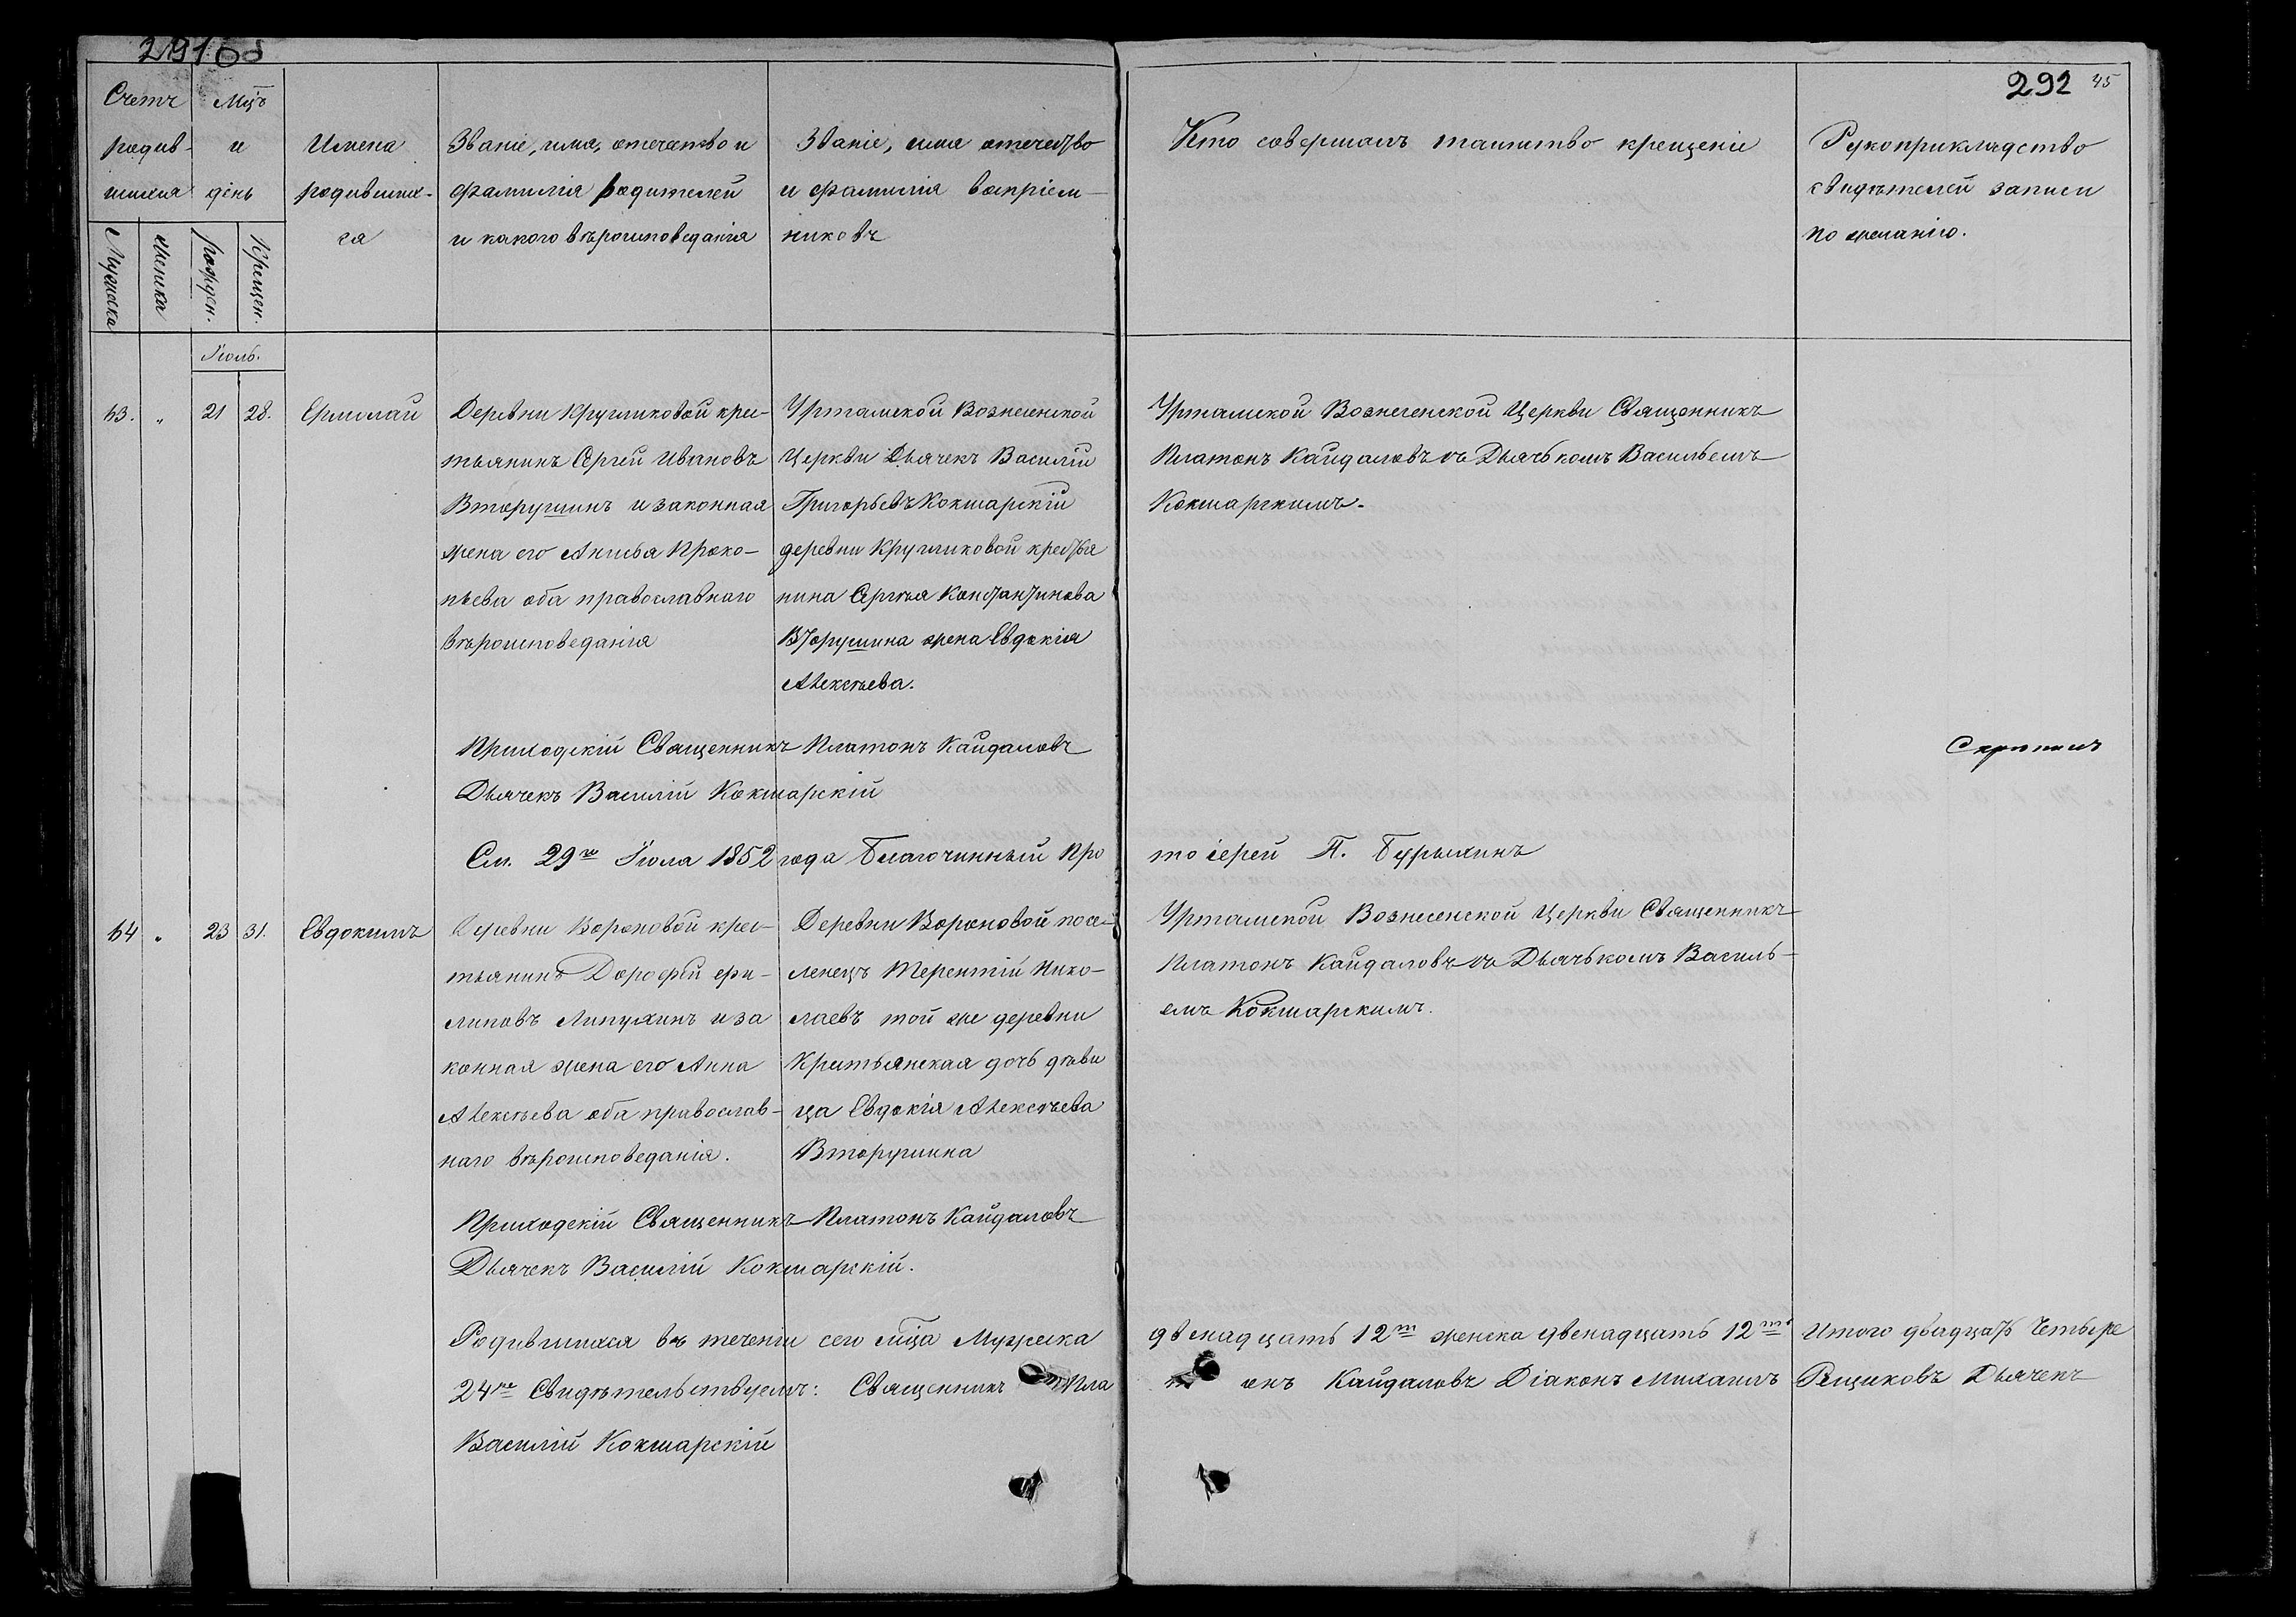 291об
292 45
Счетъ родив- шихся
Мцъ и день
Имена родивших- ся
Званіе, имя, отечество и фамилія родителей и какого вѣроисповеданія
Званіе, имя отечество и фамилія воспріем- никовъ
Кто совершалъ таинство крещенія
Рукоприкладство свидѣтелей записи по желанію.
Мужеска
женска
рожден.
Крещен.
Іюль.
63. " 21 28. Ермолай
Деревни Кругликовой крес-
тьянинъ Сергей Ивановъ
Вторушинъ и законная
жена его Анисья Проко-
пьева оба православнаго
вѣроисповеданія
Уртамской Вознесенской
Церкви Дьячекъ Василій
Григорьевъ Кокшарскій
деревни Кругликовой крестья
нина Сергѣя Константинова
Вторушина жена Евдокія
Алексѣева.
Уртамской Вознесенской Церкви Священникъ
Платонъ Кайдаловъ съ Дьячькомъ Васильемъ
Кокшарскимъ.
Приходскій Священникъ Платонъ Кайдаловъ
Дьячекъ Василій Кокшарскій
См. 29го Іюля 1852 года Благочинный Про
тоіерей П.
64 " 23 31. Евдокимъ
Деревни Вороновой крес-
тьянинъ Дорофей фи-
липовъ Липухинъ и за
конная жена его Анна
Алексѣева оба православ-
наго вѣроисповеданія.
Деревни Вороновой посе-
ленецъ Терентій Нико-
лаевъ той же деревни
Крестьянская дочь дѣви
ца Евдокія Алексѣева
Вторушина
Уртамской Вознесенской Церкви Священникъ
Платонъ Кайдаловъ съ Дьячькомъ Василь-
емъ Кокшарскимъ.
Приходскій Священникъ Платонъ Кайдаловъ
Дьячекъ Василій Кокшарскій.
Родившихся въ теченіи сего мца Мужеска двенадцать 12ть женска двенадцать 12ть Итого двадцать Четыре
24ре Свидѣтельствуемъ: Священникъ Пла т онъ Кайдаловъ Діаконъ Михаилъ Рещиковъ Дьячекъ
Василій Кокшарскій